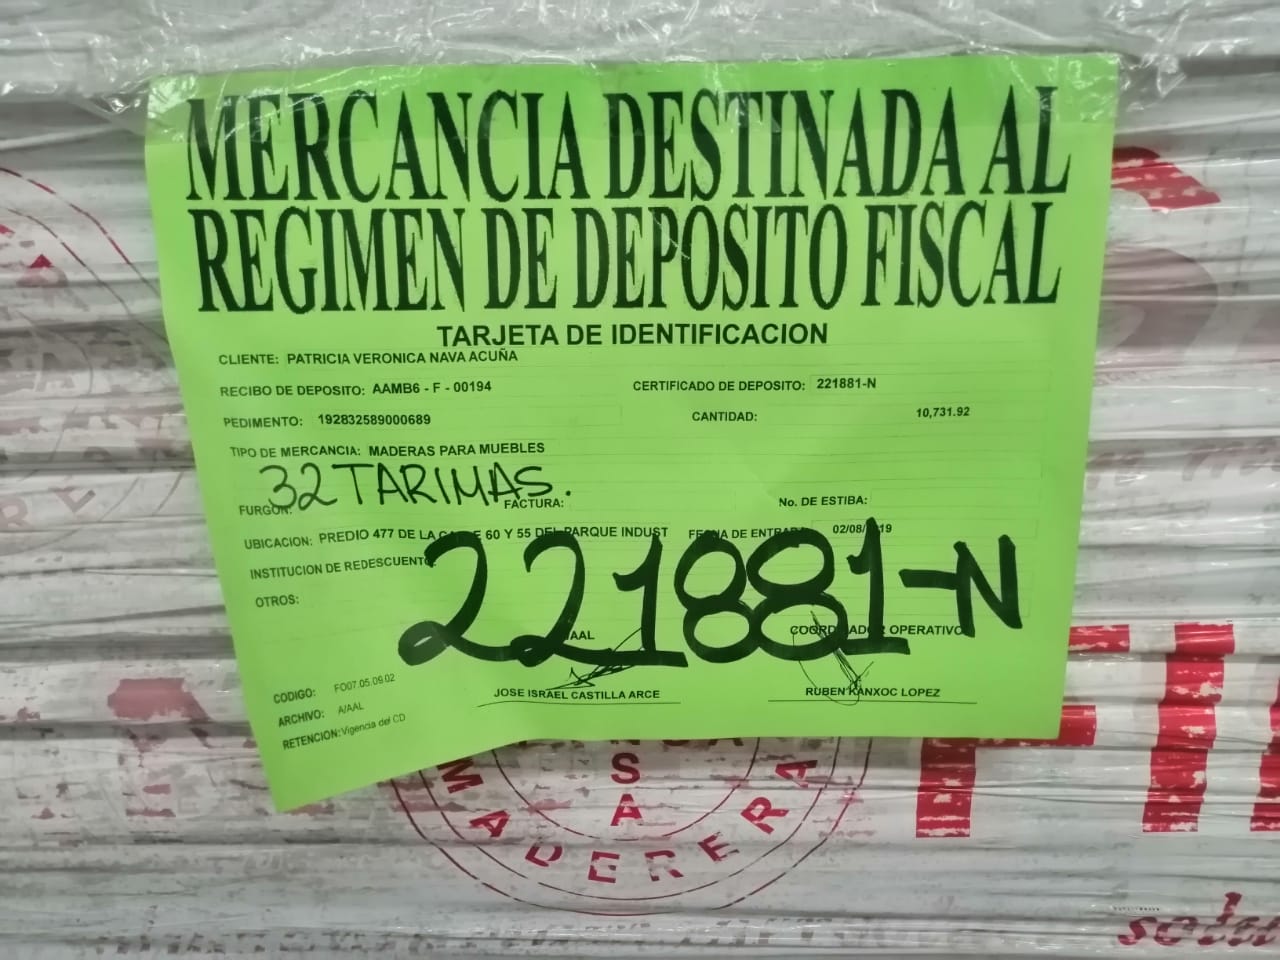 MERCANCIA DESTINADA AL
REGIMEN DE DEPOSITO FISCAL
TARJETA DE IDENTIFICACION
CLIENTE: PATRICIA VERONICA NAVA ACUÑA
RECIBO DE DEPOSITO: AAMB6 - F - 00194 CERTIFICADO DE DEPOSITO: 221881-N
PEDIMENTO: 192832589000689 CANTIDAD: 10,731.92
TIPO DE MERCANCIA: MADERAS PARA MUEBLES
32 TARIMAS.
FURGON: FACTURA: No. DE ESTIBA:
UBICACION: PREDIO 477 DE LA CALLE 60 Y 55 DEL PARQUE INDUST FECHA DE ENTRADA 02/08/2019
INSTITUCION DE REDESCUENTO
221881-N
OTROS:
A/AAL COORDINADOR OPERATIVO
JOSE ISRAEL CASTILLA ARCE RUBEN KANXOC LOPEZ
CODIGO: FO07.05.09.02
ARCHIVO: A/AAL
RETENCION: Vigencia del CD
S
A
MADERERA